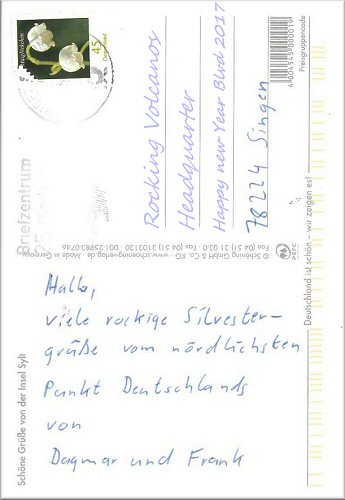 Maiglöckchen
45
Deutschland
Briefzentrum
25
Rocking Volcanos
Headquarter
Happy new Year Blvd 2017
78224 Singen
4 004565 000001
Preisgruppencode
© Schöning GmbH & Co. KG
Fon (04 51) 31 03-0 Fax (04 51) 3103130
www.schoening-verlag.de
Made in Germany
PEFC
Deutschland ist schön - wir zeigen es!
Schöne Grüße von der Insel Sylt
Hallo,
viele rockige Silvester-
grüße vom nördlichsten
Punkt Deutschlands
von
Dagmar und Frank